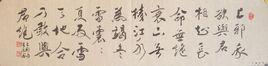 上邪我
欲與君
相知長
命無絕
衰山無
陵江水
為竭冬
雷震
夏雨雪
天地合
乃敢與
君絕